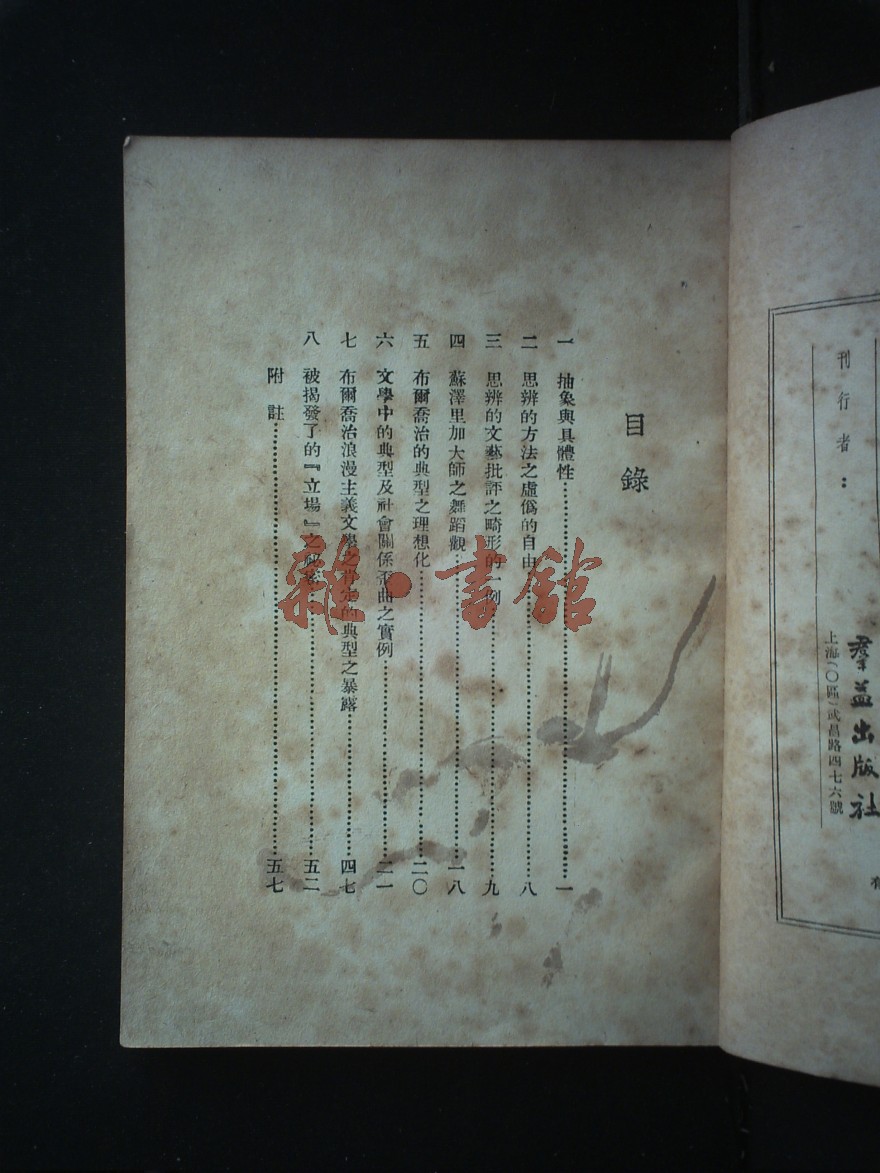 刊行者：
羣益出版社
上海(〇區)武昌路四七六號
目錄
一 抽象與具體性…………一
二 思辨的方法之虛僞的自由…………八
三 思辨的文藝批評之畸形的一例…………九
四 蘇澤里加大師之舞蹈觀…………一八
五 布爾喬治的典型之理想化…………二〇
六 文學中的典型及社會關係歪曲之實例…………二一
七 布爾喬治浪漫主義文學之肯定的典型之暴露…………四七
八 被揭發了的『立場』之祕密…………五二
附註…………五七
雜·書館